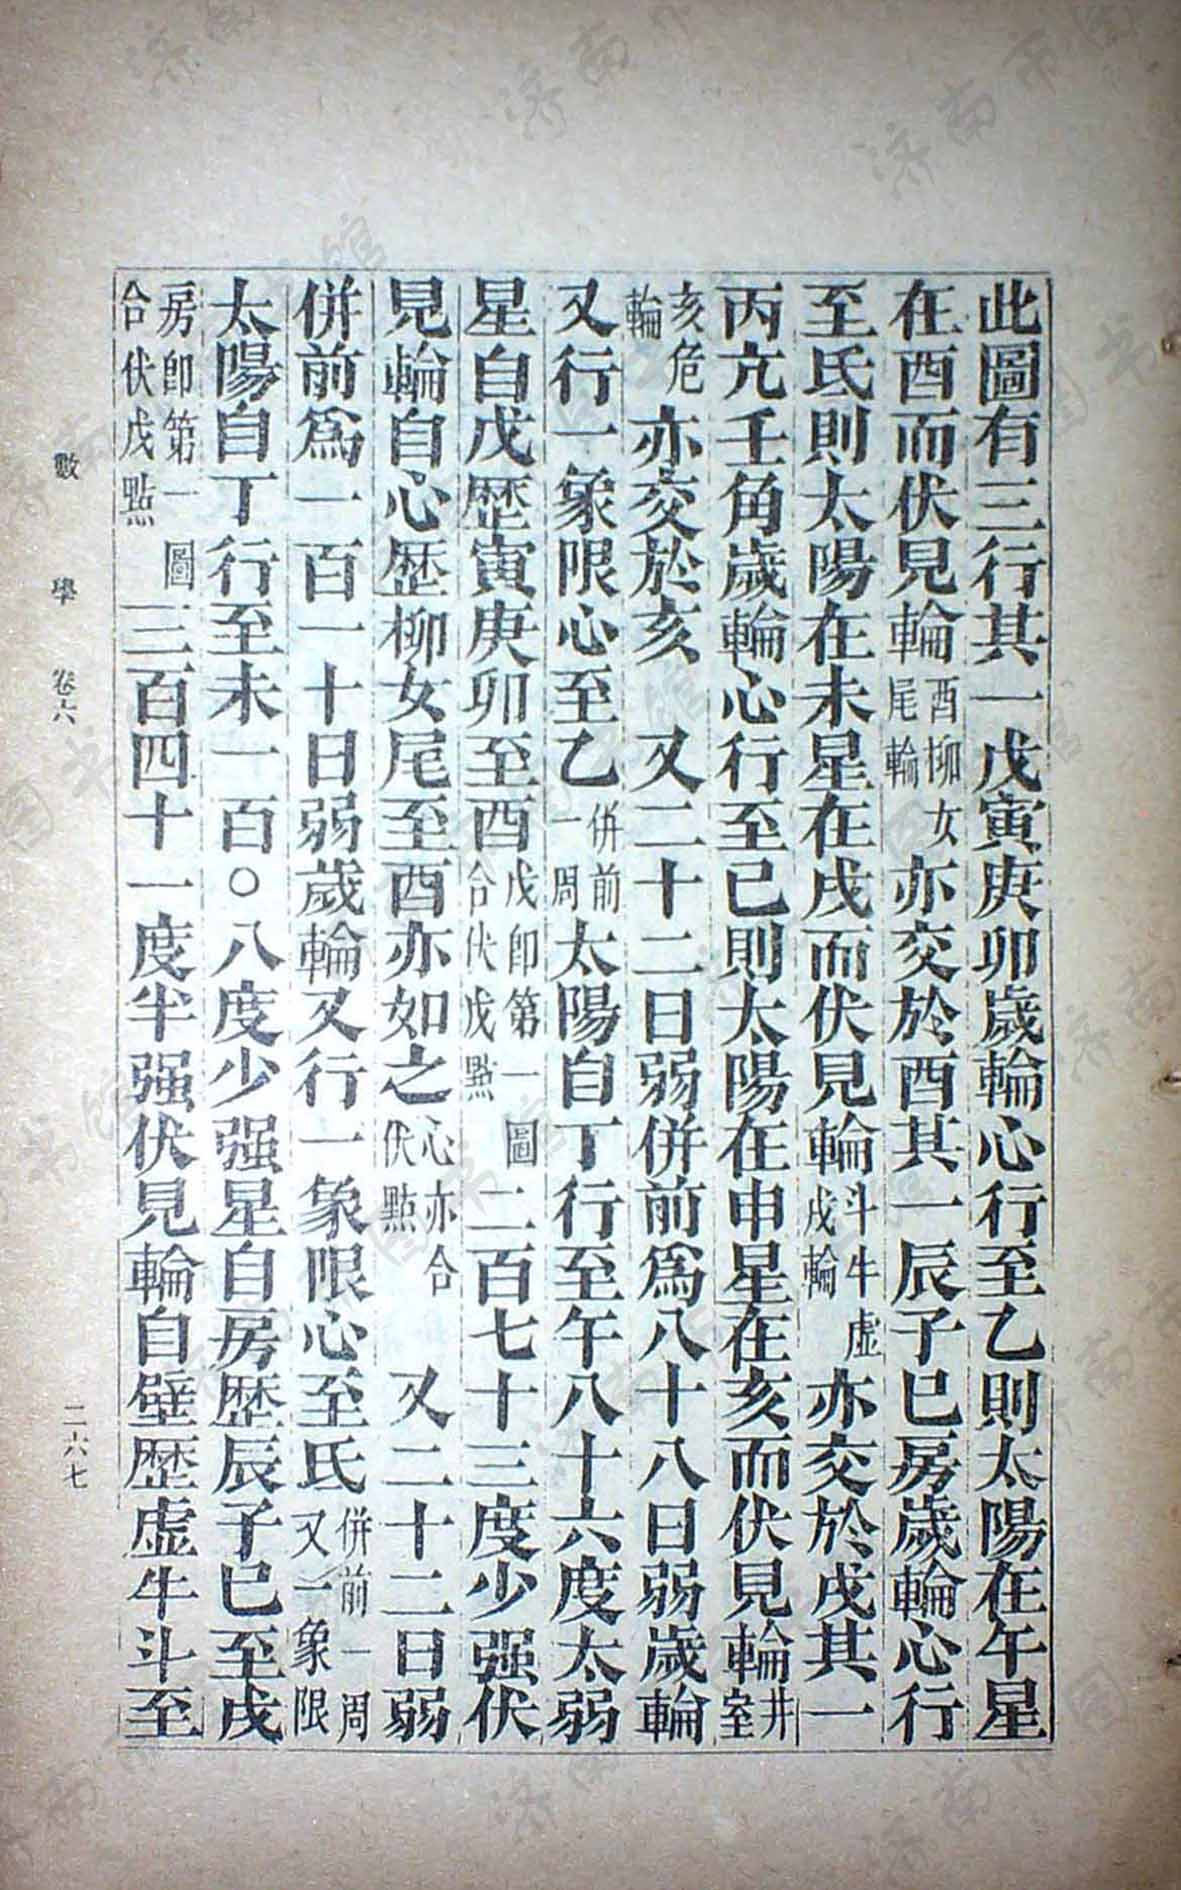 此圖有三行其一戊寅庚卯歲輪心行至乙則太陽在午星
在酉而伏見輪酉柳女尾輪亦交於酉其一辰子巳房歲輪心行
至氐則太陽在未星在戌而伏見輪斗牛虛戌輪亦交於戌其一
丙亢壬角歲輪心行至己則太陽在申星在亥而伏見輪井室
亥危輪亦交於亥　又二十二日弱併前爲八十八日弱歲輪
又行一象限心至乙併前一周太陽自丁行至午八十六度太弱
星自戊歷寅庚卯至酉戊卽第一圖合伏戊點二百七十三度少强伏
見輪自心歷柳女尾至酉亦如之心亦合伏點　又二十二日弱
併前爲一百一十日弱歲輪又行一象限心至氐併前一周又一象限
太陽自丁行至未一百〇八度少强星自房歷辰子巳至戌
房卽第一圖合伏戊點三百四十一度半强伏見輪自壁歷虛牛斗至
數學　卷六　二六七